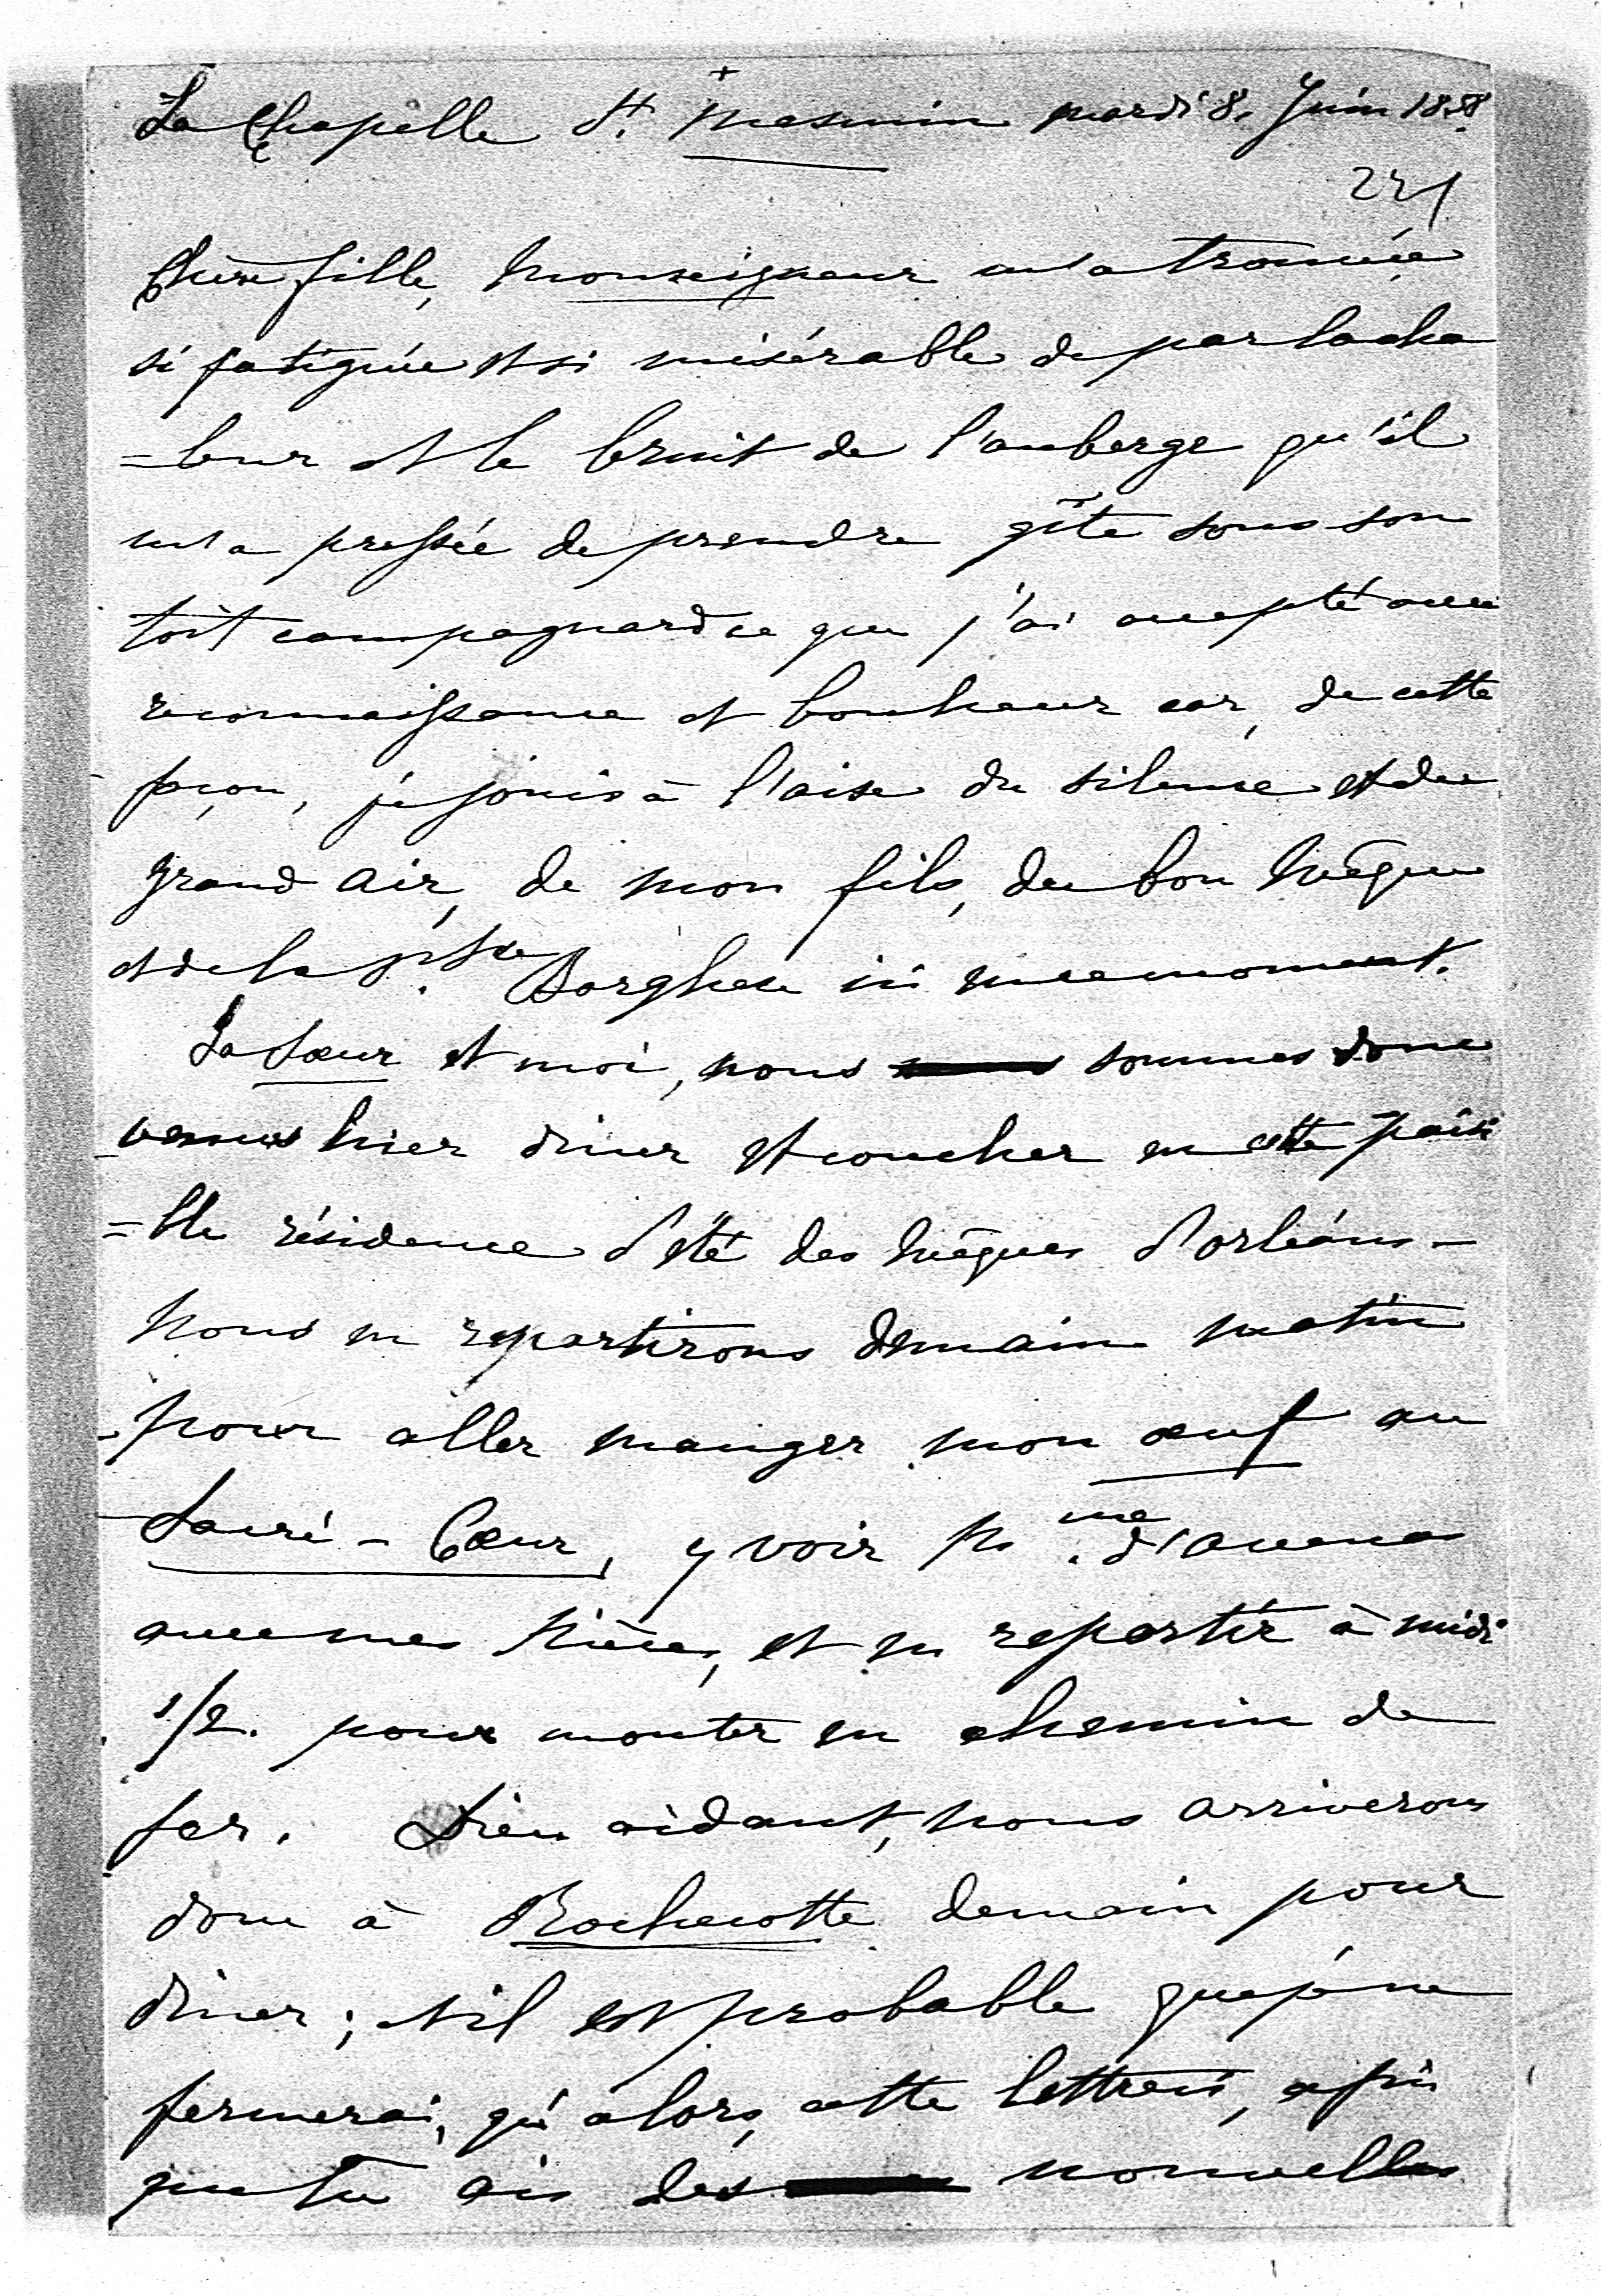 +
La Chapelle St. Mesmin mardi 8. Juin 1858.
221
Chère fille, Monseigneur m'a trouvée
si fatiguée et si misérable de par la cha
=leur et le bruit de l'auberge qu'il
m'a pressée de prendre gîte sous son
toit campagnard ce que j'ai accepté avec
reconnaissance et bonheur car, de cette
façon, je jouis à l'aise du silence et du
grand air, de mon fils, du bon Évêque
et de la pcesse Borghese ici en ce moment.
La Sœur et moi, nous sommes donc
venues hier diner et coucher en cette paisi
=ble résidence d'été des Évêques d'orléans -
Nous en repartirons demain matin
pour aller manger mon œuf au
Sacré-Cœur, y voir Mme. d'avenas
avec mes Nièces, et en repartir à midi
1/2. pour monter en chemin de
fer. Dieu aidant, nous arriverons
donc à Rochecotte demain pour
diner; et il est probable que je ne
fermerai, qu'alors, cette lettre ci, afin
que tu ais des nouvelles